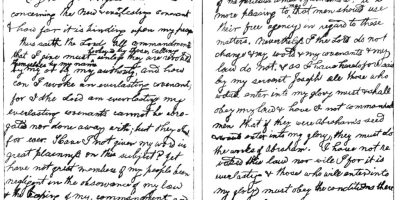 concerning the New & Everlasting Covenant
& how far it is binding upon my people
Thus saith the Lord All commandments
that I give must be obeyed by those calling
themselves by my name unless they are revoked
by me or by my authority and how
can I revoke an everlasting covenant
for I the Lord am everlasting & my
everlasting covenants cannot be abro-
gated nor done away with; but they stand
for ever. Have I not given my word in
great plainness on this subject? Yet
have not great numbers of my people been
negligent in the observance of my law
& the keeping of my commandment and
more pleasing to that men should use
their free agency in regard to these
matters. Nevertheless I the Lord do not
change & my word & my covenants & my
law do not. & as I have heretofore said
by my servant Joseph all those who
would enter into my glory must & shall
obey my law & have I not commanded
men that if they were Abraham's seed
& would enter into my glory they must do
the works of Abraham. I have not re-
voked this law nor will I for it is
everlasting & those who will enter into
my glory must obey the conditions there